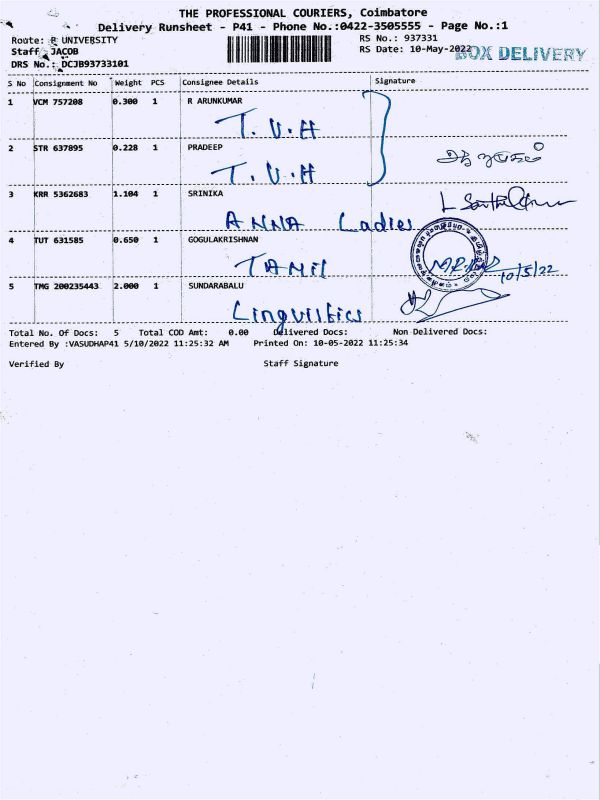 THE PROFESSIONAL COURIERS, Coimbatore
Delivery Runsheet - P41 - Phone No.:0422-3505555 - Page No.:1
Route: R UNIVERSITY RS No.: 937331
Staff JACOB RS Date: 10-May-2022 BOX DELIVERY
DRS No.: DCJB93733101
S No Consignment No Weight PCS Consignee Details Signature
1 VCM 757208 0.300 1 R ARUNKUMAR
T.V.H
2 STR 637895 0.228 1 PRADEEP
T.V.H
3 KRR 5362683 1.104 1 SRINIKA
ANNA Ladies
4 TUT 631585 0.650 1 GOGULAKRISHNAN
TAMIL 10/5/22
5 TMG 200235443 2.000 1 SUNDARABALU
Linguistics
Total No. Of Docs: 5 Total COD Amt: 0.00 Delivered Docs: Non Delivered Docs:
Entered By :VASUDHAP41 5/10/2022 11:25:32 AM Printed On: 10-05-2022 11:25:34
Verified By Staff Signature